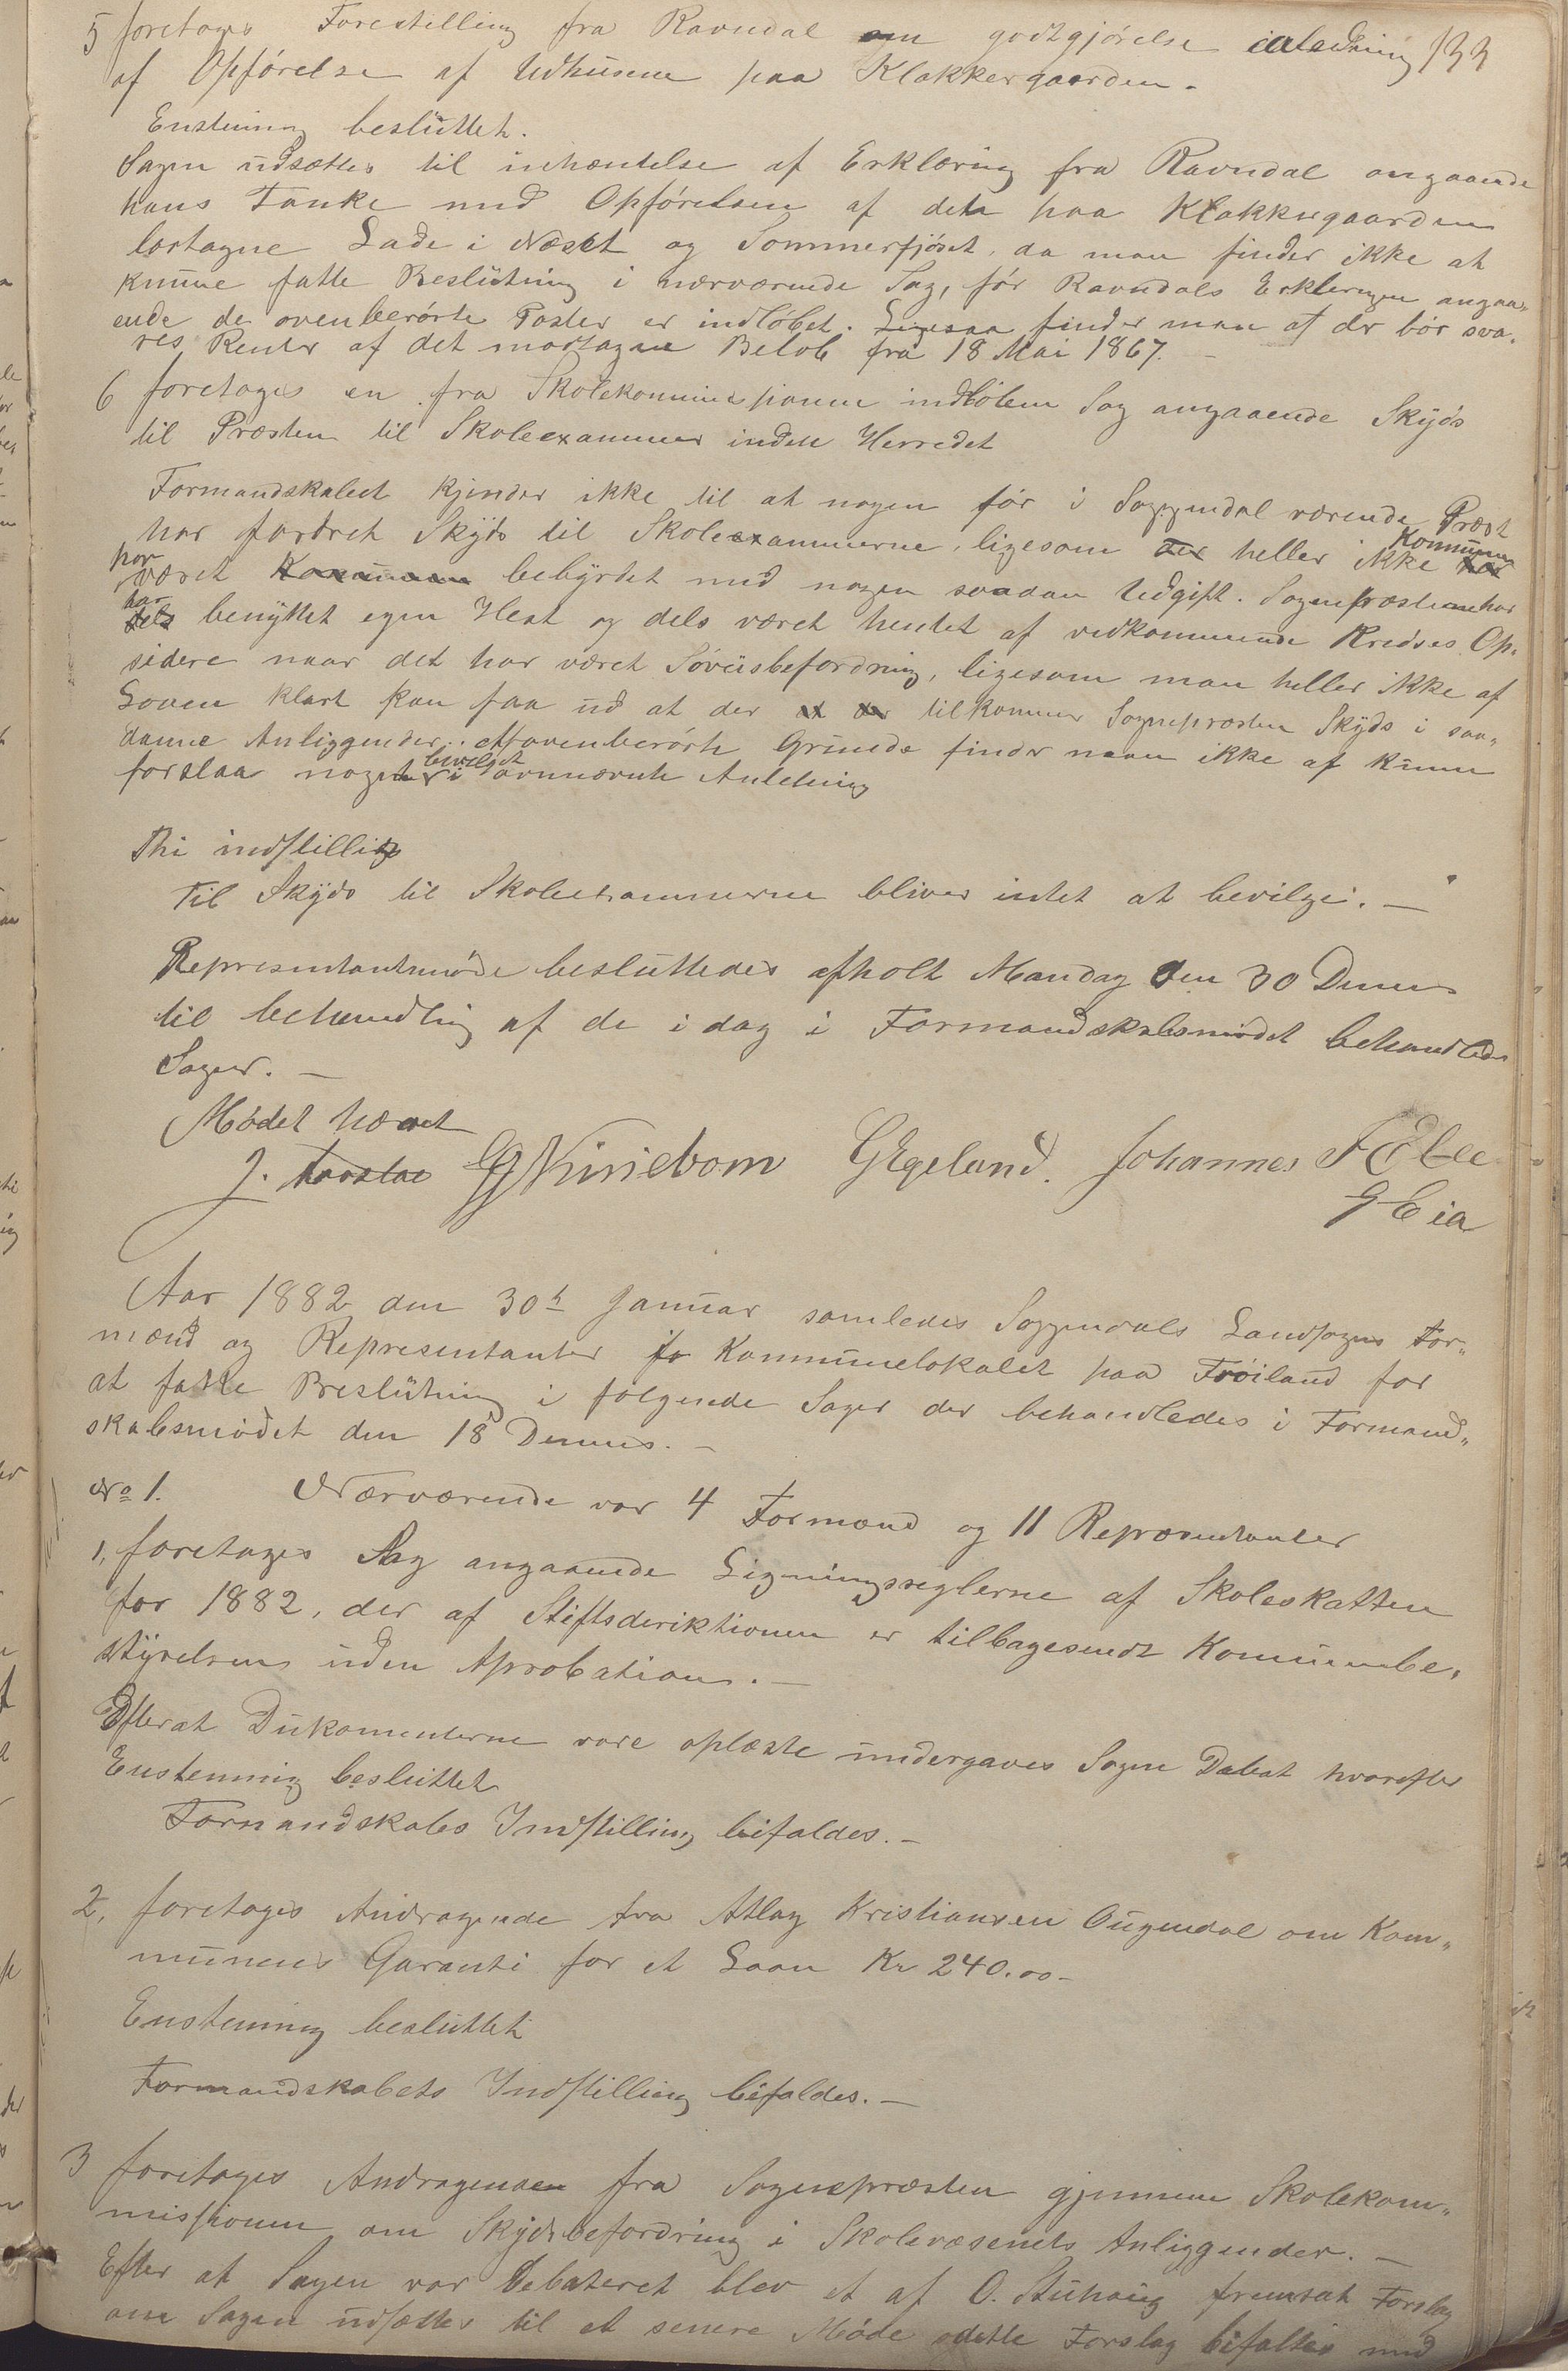 133
5 foretoges Forestilling fra Ravndal om godtgjörelse ianledning
af Opförelse af Udhusene paa Klakkergaarden.
Enstemig beslüttet.
Sagen üdsættes til inhæntelse af Erklæring fra Ravndal angaaende
hans Tanke med Opförelsen af det paa Klakkergaarden
bortagne Lade i Næset og Sommerfjöset, da man finder ikke at
kunne fatte Beslütning i nærværende Sag, för Ravndals Erkleringen angaa„
ende de ovenberörte Poster er indlöbet. Ligesaa finder man at der bör sva„
res Renter af det modtagne Belöb fra 18 Mai 1867. —
6 foretoges en fra Skolekommissionen indlöben Sag angaaende Skyds
til Præsten til Skoleexammer inden Herredet
Formandskabet kjender ikke til at nogen för i Soggendal værende Præst
har fordret Skyds til Skoleexammerne, ligesom heller ikke Kommünen
har været bebyrdet med nogen saadan Udgift. Sognepræsterne har
har benyttet egen Hest og dels været hentet af vedkommende Kredses Op„
sidere naar det har været Söveisbefordring, ligesom man heller ikke af
Loven klart kan faa üd at der tilkommer Sognepræsten Skyds i saa„
danne Anliggender. Af ovenberörte Grunde finder man ikke at künne
forslaa noget bevilget i ovennævnte Anledning
Thi indstilling
Til Skyds til Skoleexammerne bliver intet at bevilge. —
Representantmöde besluttedes afholt Mandag den 30 Dennes
til behandling af de i dag i Formandskabsmödet behandlede
Sager. —
Mödet hævet
J. GEgeland. Johannes
G Eia
Aar 1882 den 30te Januar samledes Soggendals Landsogns For„
mænd og Representanter Kommunelokalet paa Fröiland for
at fatte Beslütning i fölgende Sager der behandledes i Formand„
skabsmödet den 18 Dennes. —
No 1. Nærværende var 4 Formænd og 11 Repræsentanter
1, foretoges Sag angaaende Ligningsreglerne af Skoleskatten
for 1882, der af Stiftsderiktionen er tilbagesendt Kommunebe„
styrelsen uden Aprobation. —
Efterat Dükomenterne vare oplæste undergaves Sagen Debat hvorefter
Enstemmig besluttet
Formandskabs Indstilling bifaldes. —
2, foretoges Andragende fra Atlag Kristiansen Ougendal om Kom„
munens Garanti for et Laan Kr 240.00 —
Enstemmig besluttet
Formandskabets Indstilling bifaldes. —
3 foretoges Andragenden fra Sognepræsten gjennem Skolekom„
missionen om Skydsbefordring i Skolevæsenets Anliggender. —
Efter at Sagen var Debateret blev et af O. Stuhaug fremsat Forslag
om Sagen udsættes til et senere Möde dette Forslag bifaltes med